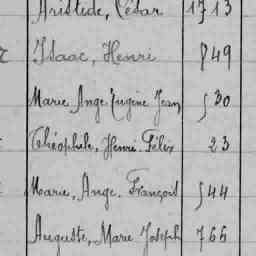 Aristide, César 1713
Isaac, Henri 849
Marie Ange Eugène Jean 530
Théophile, Henri Félix 23
Marie, Ange, François 544
Auguste, Marie Joseph 766